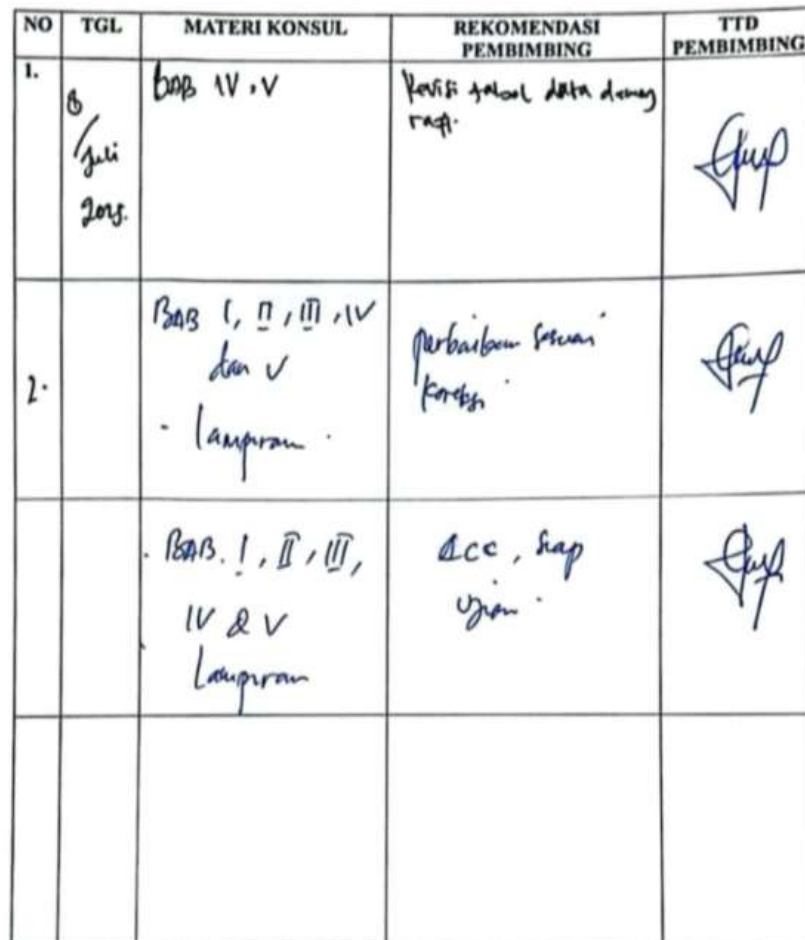 NO TGL MATERI KONSUL REKOMENDASI PEMBIMBING TTD PEMBIMBING
1.
8
/Juli
2025.
BAB IV, V
Revisi tabel data dengan
rapi.
2.
BAB I, II, III, IV
dan V
- lampiran.
perbaikan sesuai
koreksi
BAB. I, II, III,
IV & V
Lampiran
Acc, siap
ujian.